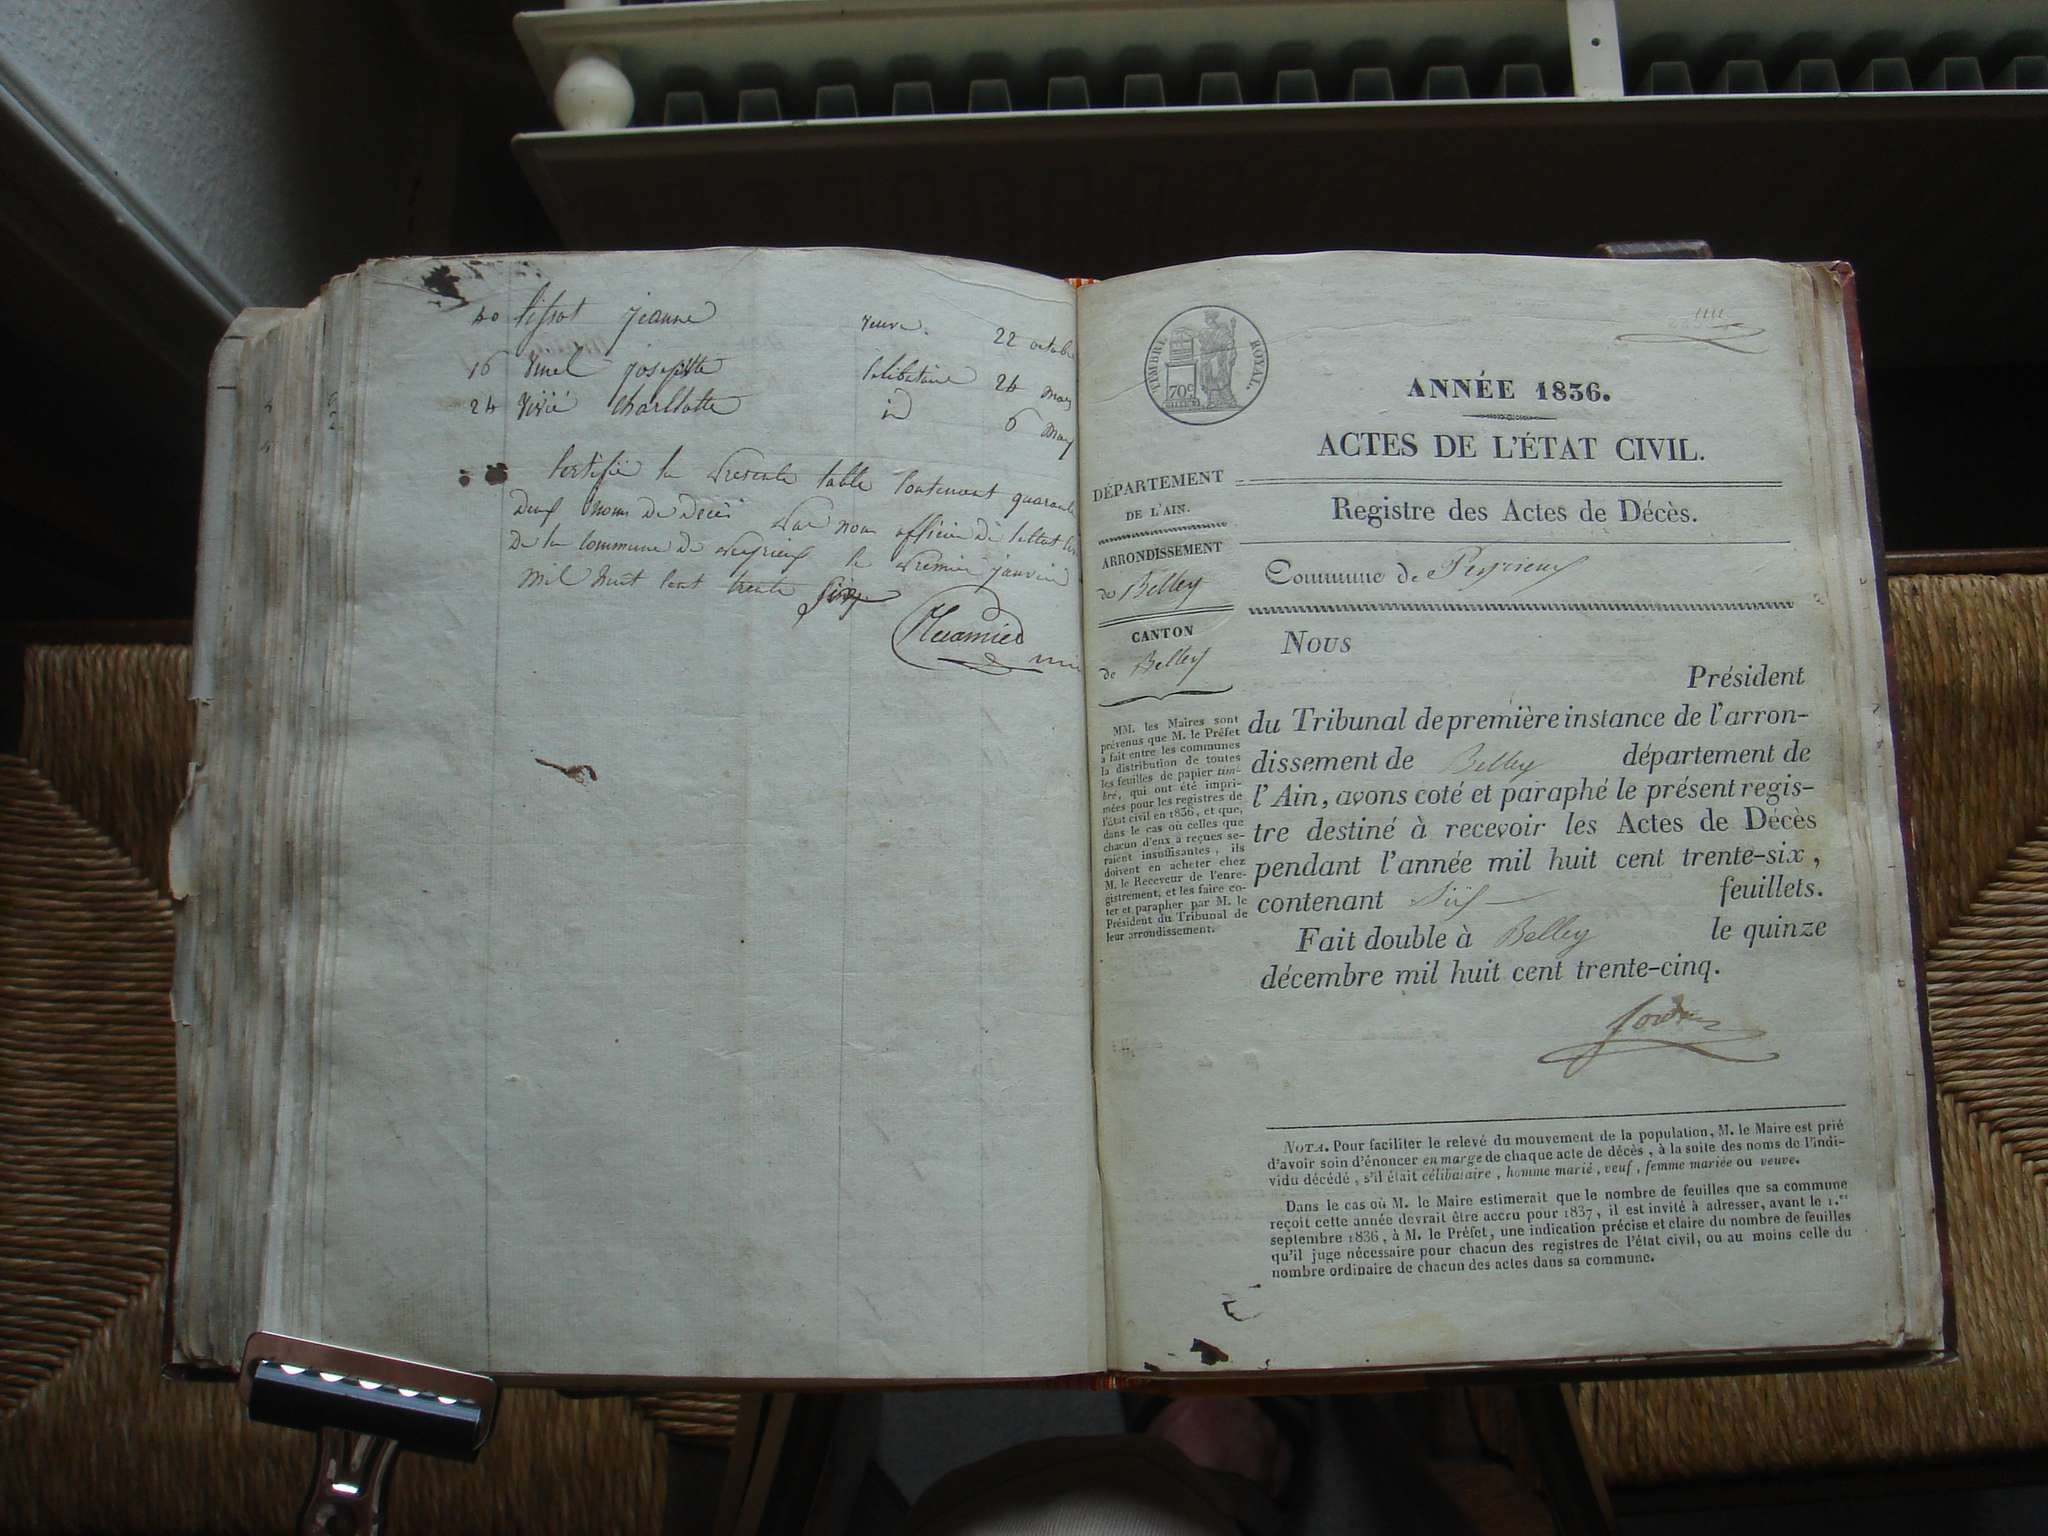 40 tissot jeanne veuve. 22 octobre
16 vinel josephte celibataire 24 mars
24 vivié charllotte id 6 may
Certifié la presente table contenant quarante
deux noms de décès par nous officier de l'ettat civil
de la commune de peyrieux le premier janvier
mil huit cent trente six
TIMBRE ROYAL.
70c
ANNÉE 1836.
ACTES DE L'ÉTAT CIVIL.
Registre des Actes de Décès.
Commune de Peyrieux
DÉPARTEMENT
DE L'AIN.
ARRONDISSEMENT
de Belley
CANTON
de Belley
MM. les Maires sont
prévenus que M. le Préfet
a fait entre les communes
la distribution de toutes
les feuilles de papier tim-
bré, qui ont été impri-
mées pour les registres de
l'état civil en 1836, et que,
dans le cas où celles que
chacun d'eux a reçues se-
raient insuffisantes, ils
doivent en acheter chez
M. le Receveur de l'enre-
gistrement, et les faire co-
ter et parapher par M. le
Président du Tribunal de
leur arrondissement.
Nous
Président
du Tribunal de première instance de l'arron-
dissement de Belley département de
l'Ain, avons coté et paraphé le présent regis-
tre destiné à recevoir les Actes de Décès
pendant l'année mil huit cent trente-six,
contenant Six feuillets.
Fait double à Belley le quinze
décembre mil huit cent trente-cinq.
NOTA. Pour faciliter le relevé du mouvement de la population, M. le Maire est prié
d'avoir soin d'énoncer en marge de chaque acte de décès, à la suite des noms de l'indi-
vidu décédé, s'il était célibataire, homme marié, veuf, femme mariée ou veuve.
Dans le cas où M. le Maire estimerait que le nombre de feuilles que sa commune
reçoit cette année devrait être accru pour 1837, il est invité à adresser, avant le 1.er
septembre 1836, à M. le Préfet, une indication précise et claire du nombre de feuilles
qu'il juge nécessaire pour chacun des registres de l'état civil, ou au moins celle du
nombre ordinaire de chacun des actes dans sa commune.